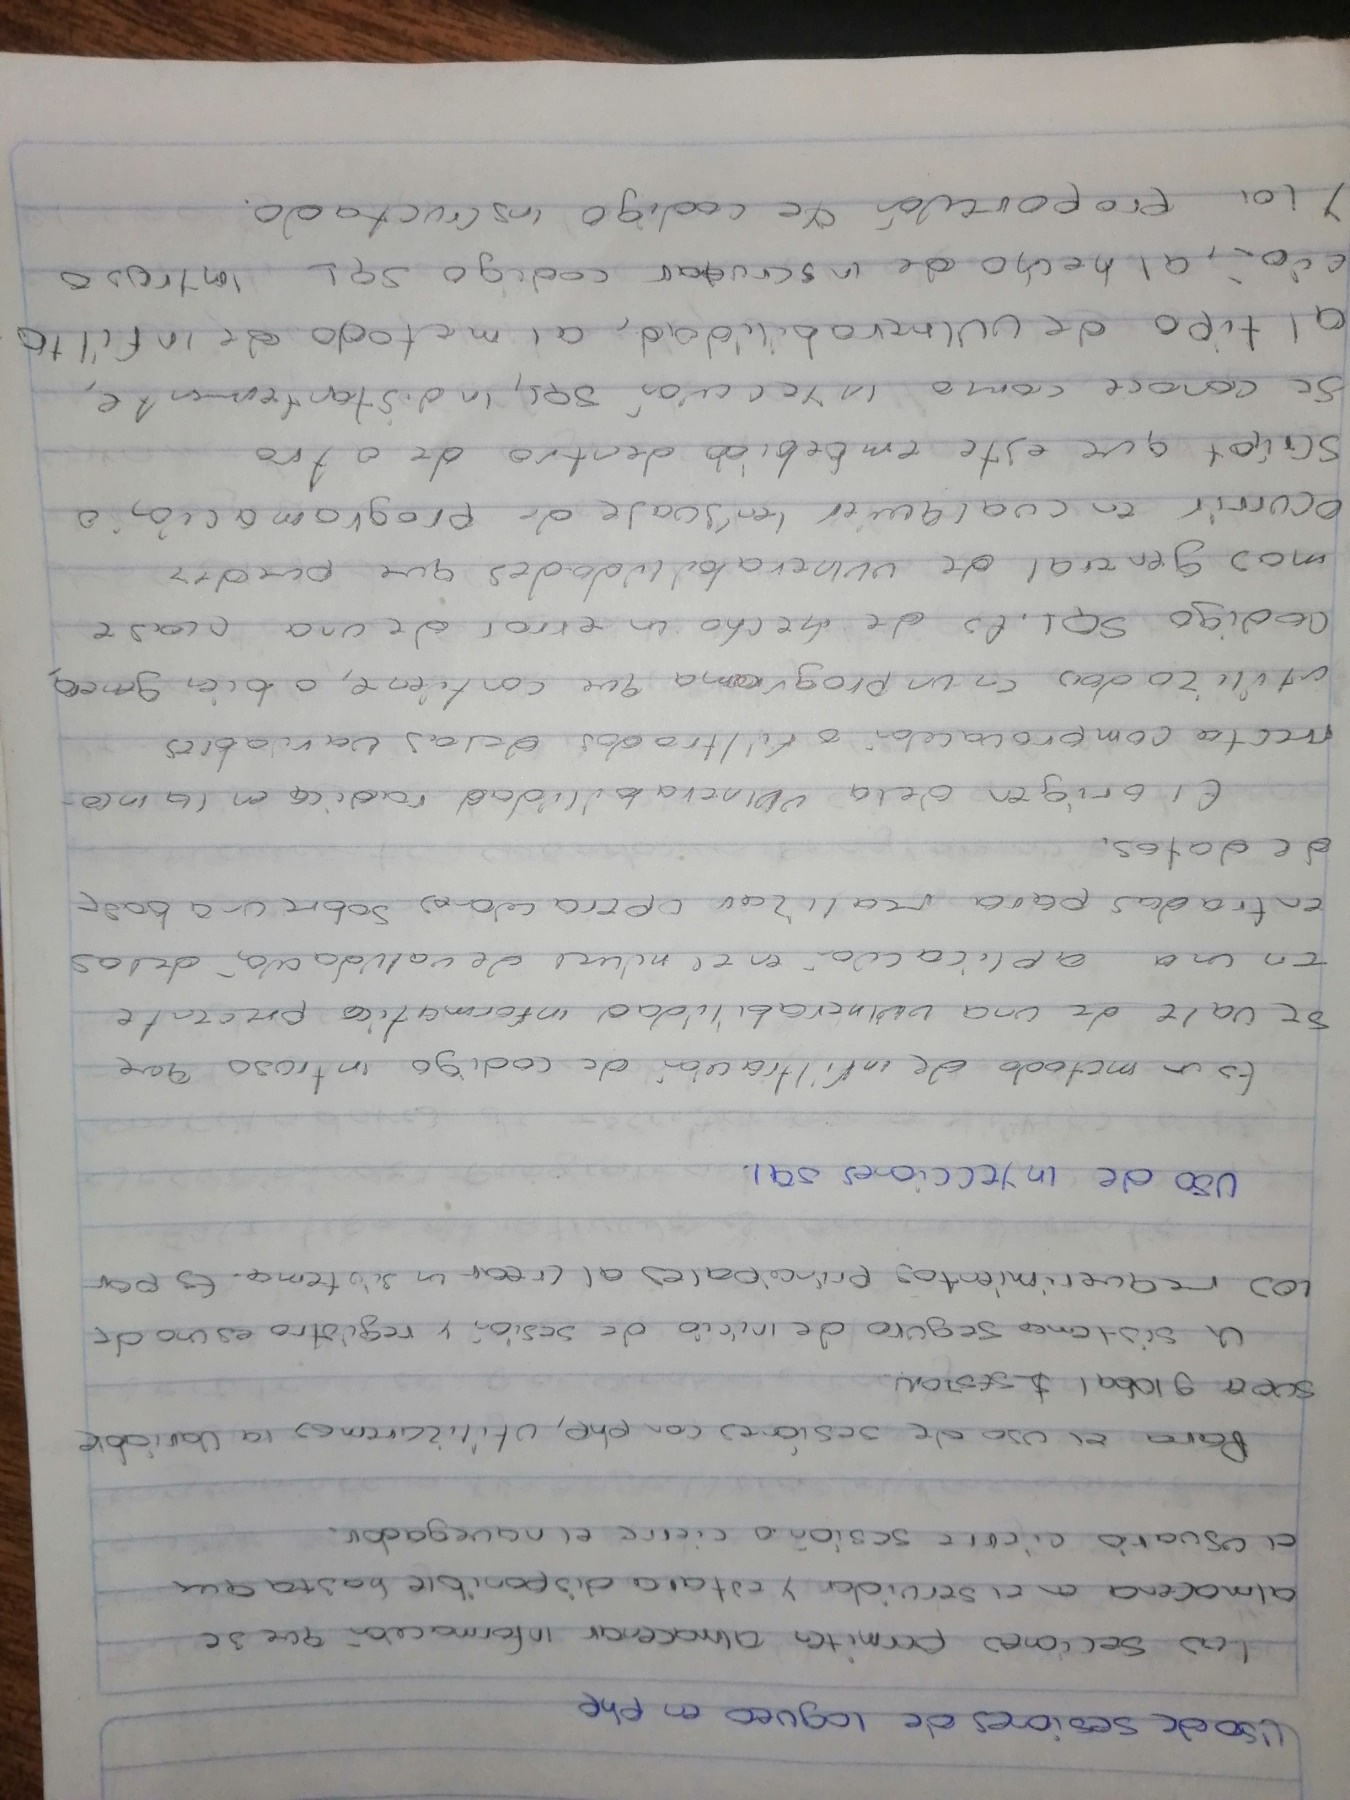 Uso de sesiones de logueo en php
Las secciones permiten almacenar información que se
almacena en el servidor y estara disponible hasta que
el usuario cierre sesión o cierre el navegador.
Para el uso de sesiones con php, utilizaremos la variable
super global $-sesion.
Un sistema seguro de inicio de sesión y registro es uno de
los requerimientos principales al crear un sistema. Es por
Uso de inyecciones sql.
Es un metodo de infiltración de codigo intruso que
se vale de una vulnerabilidad informatica presente
en una aplicación en el nivel de validación de las
entradas para realizar operaciones sobre una base
de datos.
El origen de la vulnerabilidad radica en la inco-
rrecta comprobación o filtrados de las variables
utilizadas en un programa que contiene, o bien genera,
codigo SQL. Es de hecho un error de una clase
mas general de vulnerabilidades que puede
ocurrir en cualquier lenguaje de programación, o
script que este embebido dentro de otro
se conoce como inyección SQL, indistantemente,
al tipo de vulnerabilidad, al metodo de infiltra
ción, al hecho de inscrutar codigo SQL intruso
y la proporción de codigo inscructado.